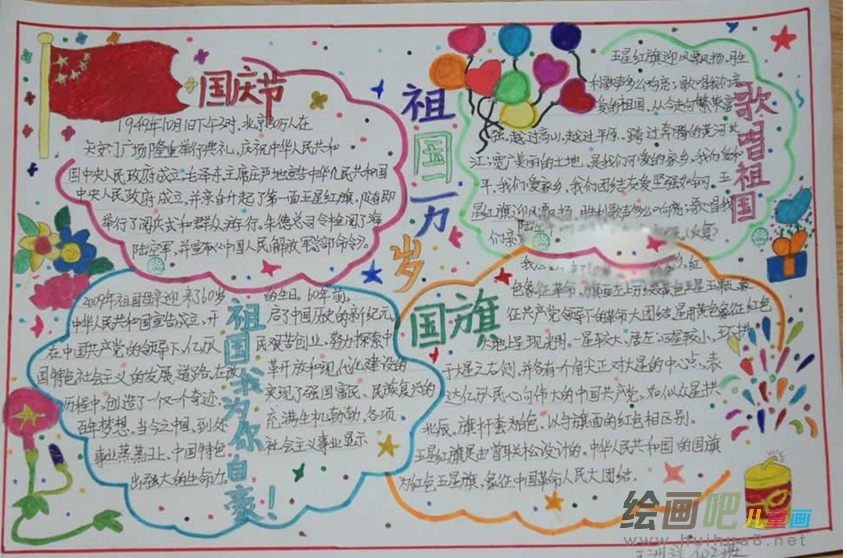 国庆节
1949年10月1日下午3时,北京30万人在
天安门广场隆重举行典礼,庆祝中华人民共和
国中央人民政府成立。毛泽东主席庄严地宣告中华人民共和国
中央人民政府成立,并亲自升起了第一面五星红旗,
举行了阅兵式和群众游行。朱德总司令检阅了海
陆空军,并宣布《中国人民解放军总部命令》。
祖国万岁
歌唱祖国
五星红旗迎风飘扬,胜
利歌声多么响亮;歌唱我们亲
爱的祖国,从今走向繁荣富
强。越过高山,越过平原,跨过奔腾的黄河长
江;宽广美丽的土地,是我们可爱的家乡。我们爱和
平,我们爱家乡,我们团结友爱坚强如钢。五
星红旗迎风飘扬,胜利歌声多么响亮;歌唱我
们亲
祖国我为你自豪!
2009年祖国母亲迎来了60岁的生日。60年前,
中华人民共和国宣告成立,开启了中国历史的新纪元。
在中国共产党的领导下,亿万人民艰苦创业,努力探索中
国特色社会主义的发展道路,在改革开放和现代化建设的
历程中,创造了一个又一个奇迹,实现了强国富民、民族复兴的
百年梦想。当今云中国,到处充满生机勃勃,各项
事业蒸蒸日上,中国特色社会主义事业显示
出强大的生命力
国旗
色象征革命,旗面左上方缀黄色五星五颗,象
征共产党领导下的革命大团结,星用黄色象征红色
大地上呈现光明。一星较大,居左,四星较小,环拱
于大星之右侧,并各有一个角尖正对大星的中心点,表
达亿万人民心向伟大的中国共产党,如似众星拱
北辰。旗杆套为白色,以与旗面的红色相区别。
五星红旗是由曾联松设计的。中华人民共和国的国旗
为红色五星旗,象征中国革命人民大团结。
绘画吧儿童画
www.huihua8.net